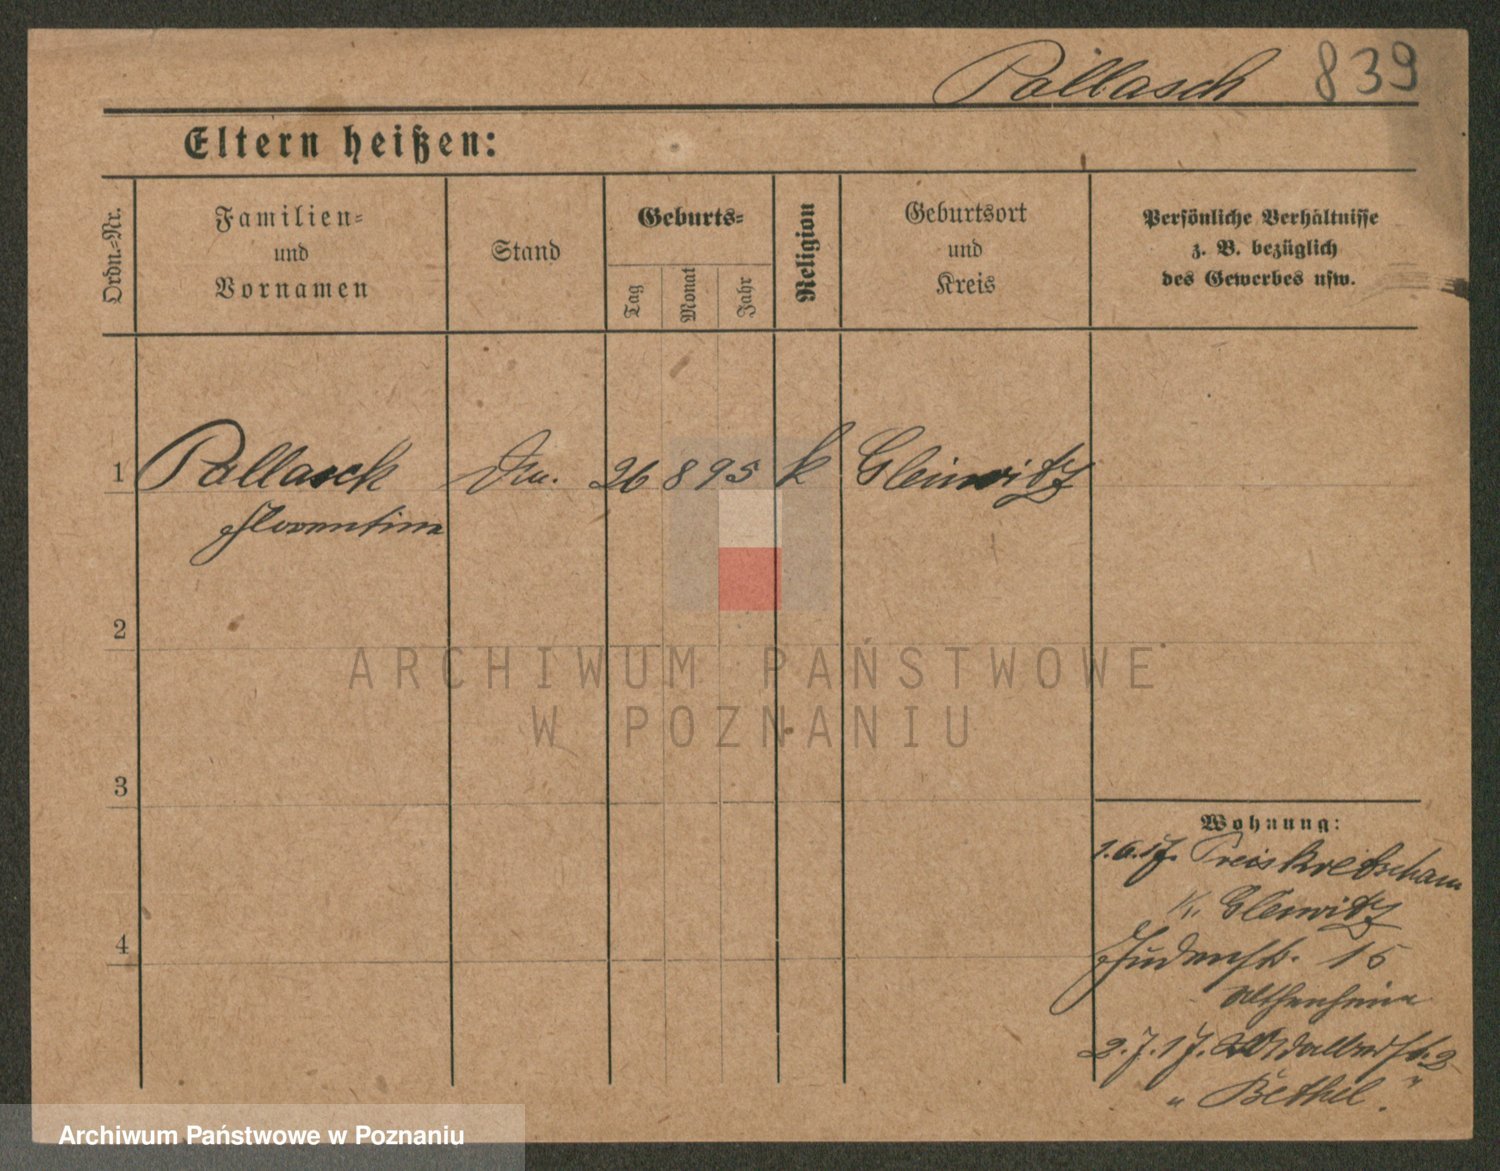 Pallasch 839
Eltern heißen:
Ordn.-Nr.
Familien-
und
Vornamen
Stand
Geburts-
Tag
Monat
Jahr
Religion
Geburtsort
und
Kreis
Persönliche Verhältnisse
z. B. bezüglich
des Gewerbes usw.
1 Pallasch 26 8 95 k Gleiwitz
Florentine
2
3
4
ARCHIWUM PAŃSTWOWE
W POZNANIU
Wohnung:
1.6.17. Preiskretscham
K. Gleiwitz
Judenstr. 15
2.7.17. 2
"Bethel."
Archiwum Państwowe w Poznaniu